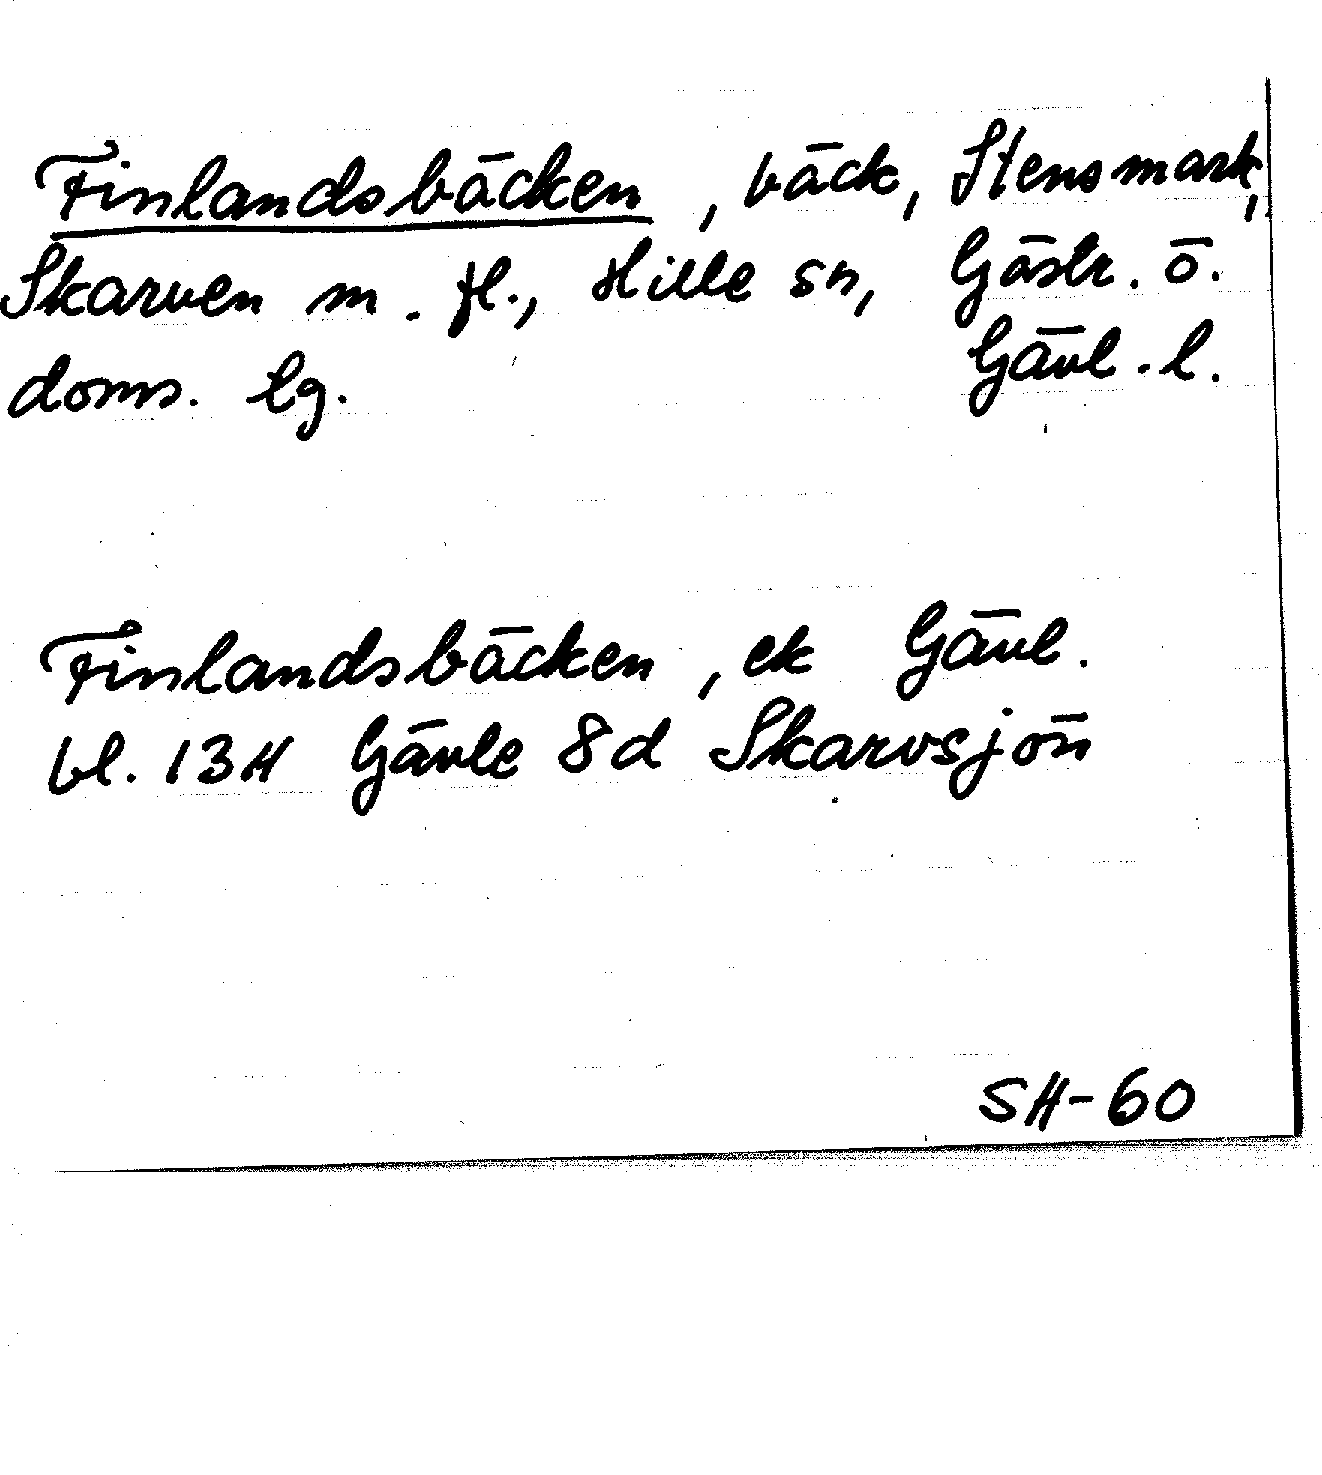 Finlandsbäcken, bäck, Stensmark,
Skarven m. fl., Hille sn, Gästr. ö.
doms. lg. Gävl. l.
Finlandsbäcken, ek Gävl.
bl. 13H Gävle 8d Skarvsjön
SH-60